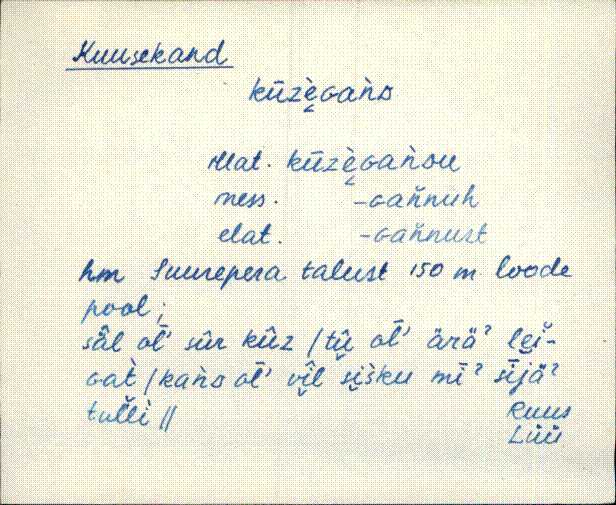 Kuusekand
kūzèɢaǹᴅ
illat. kūzèɢaǹᴅu
iness. -ɢaňnuh
elat. -ɢaňnust
hm Suurepera talust 150 m loode
pool;
säl oĺ' sūr kūz / tū oĺ' ärä? lei-
ɢaὶ / kaǹᴅ oĺ' vīl sišku mī? sījä?
tulli //
Ruus
Lüü